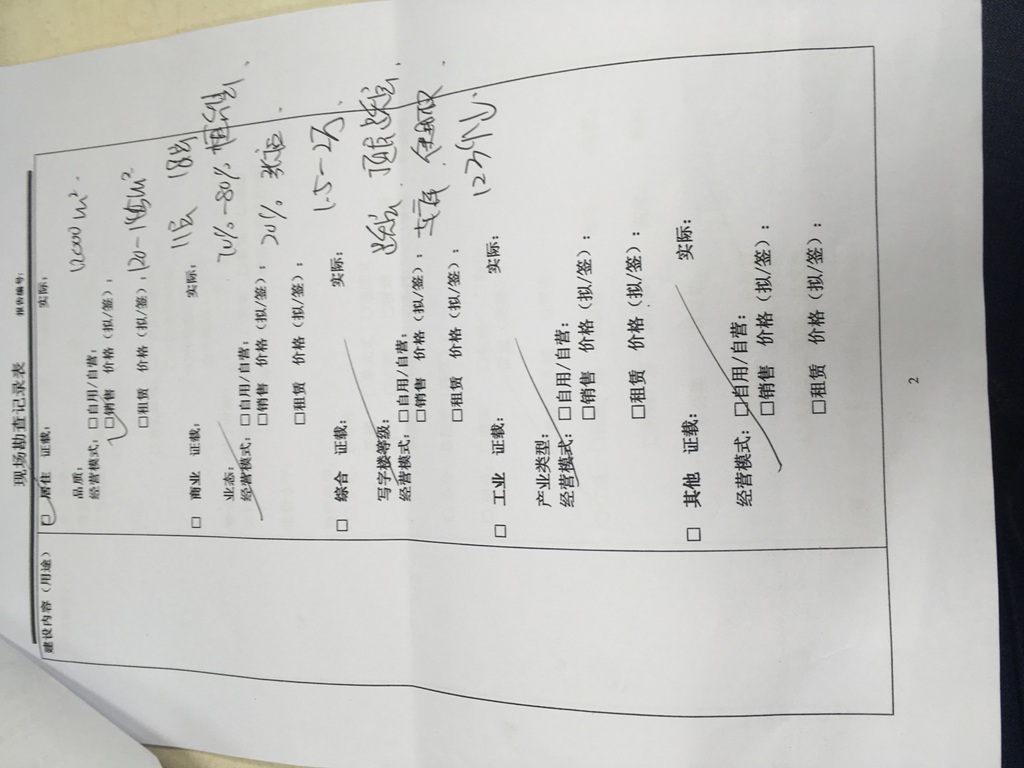 现场勘查记录表
报告编号：
建设内容（用途）
□ 居住 证载： 实际：
品质： 12000m².
经营模式：□自用/自营：
□销售 价格（拟/签）：
□租赁 价格（拟/签）：120-
□ 商业 证载： 实际： 11层
业态： 70%-80%
经营模式：□自用/自营：
□销售 价格（拟/签）： 20%
□租赁 价格（拟/签）：
□ 综合 证载： 实际： 1.5-2万.
写字楼等级：
经营模式：□自用/自营：
□销售 价格（拟/签）：
□租赁 价格（拟/签）：
□ 工业 证载： 实际： 123个
产业类型：
经营模式：□自用/自营：
□销售 价格（拟/签）：
□租赁 价格（拟/签）：
□ 其他 证载： 实际：
经营模式：□自用/自营：
□销售 价格（拟/签）：
□租赁 价格（拟/签）：
2